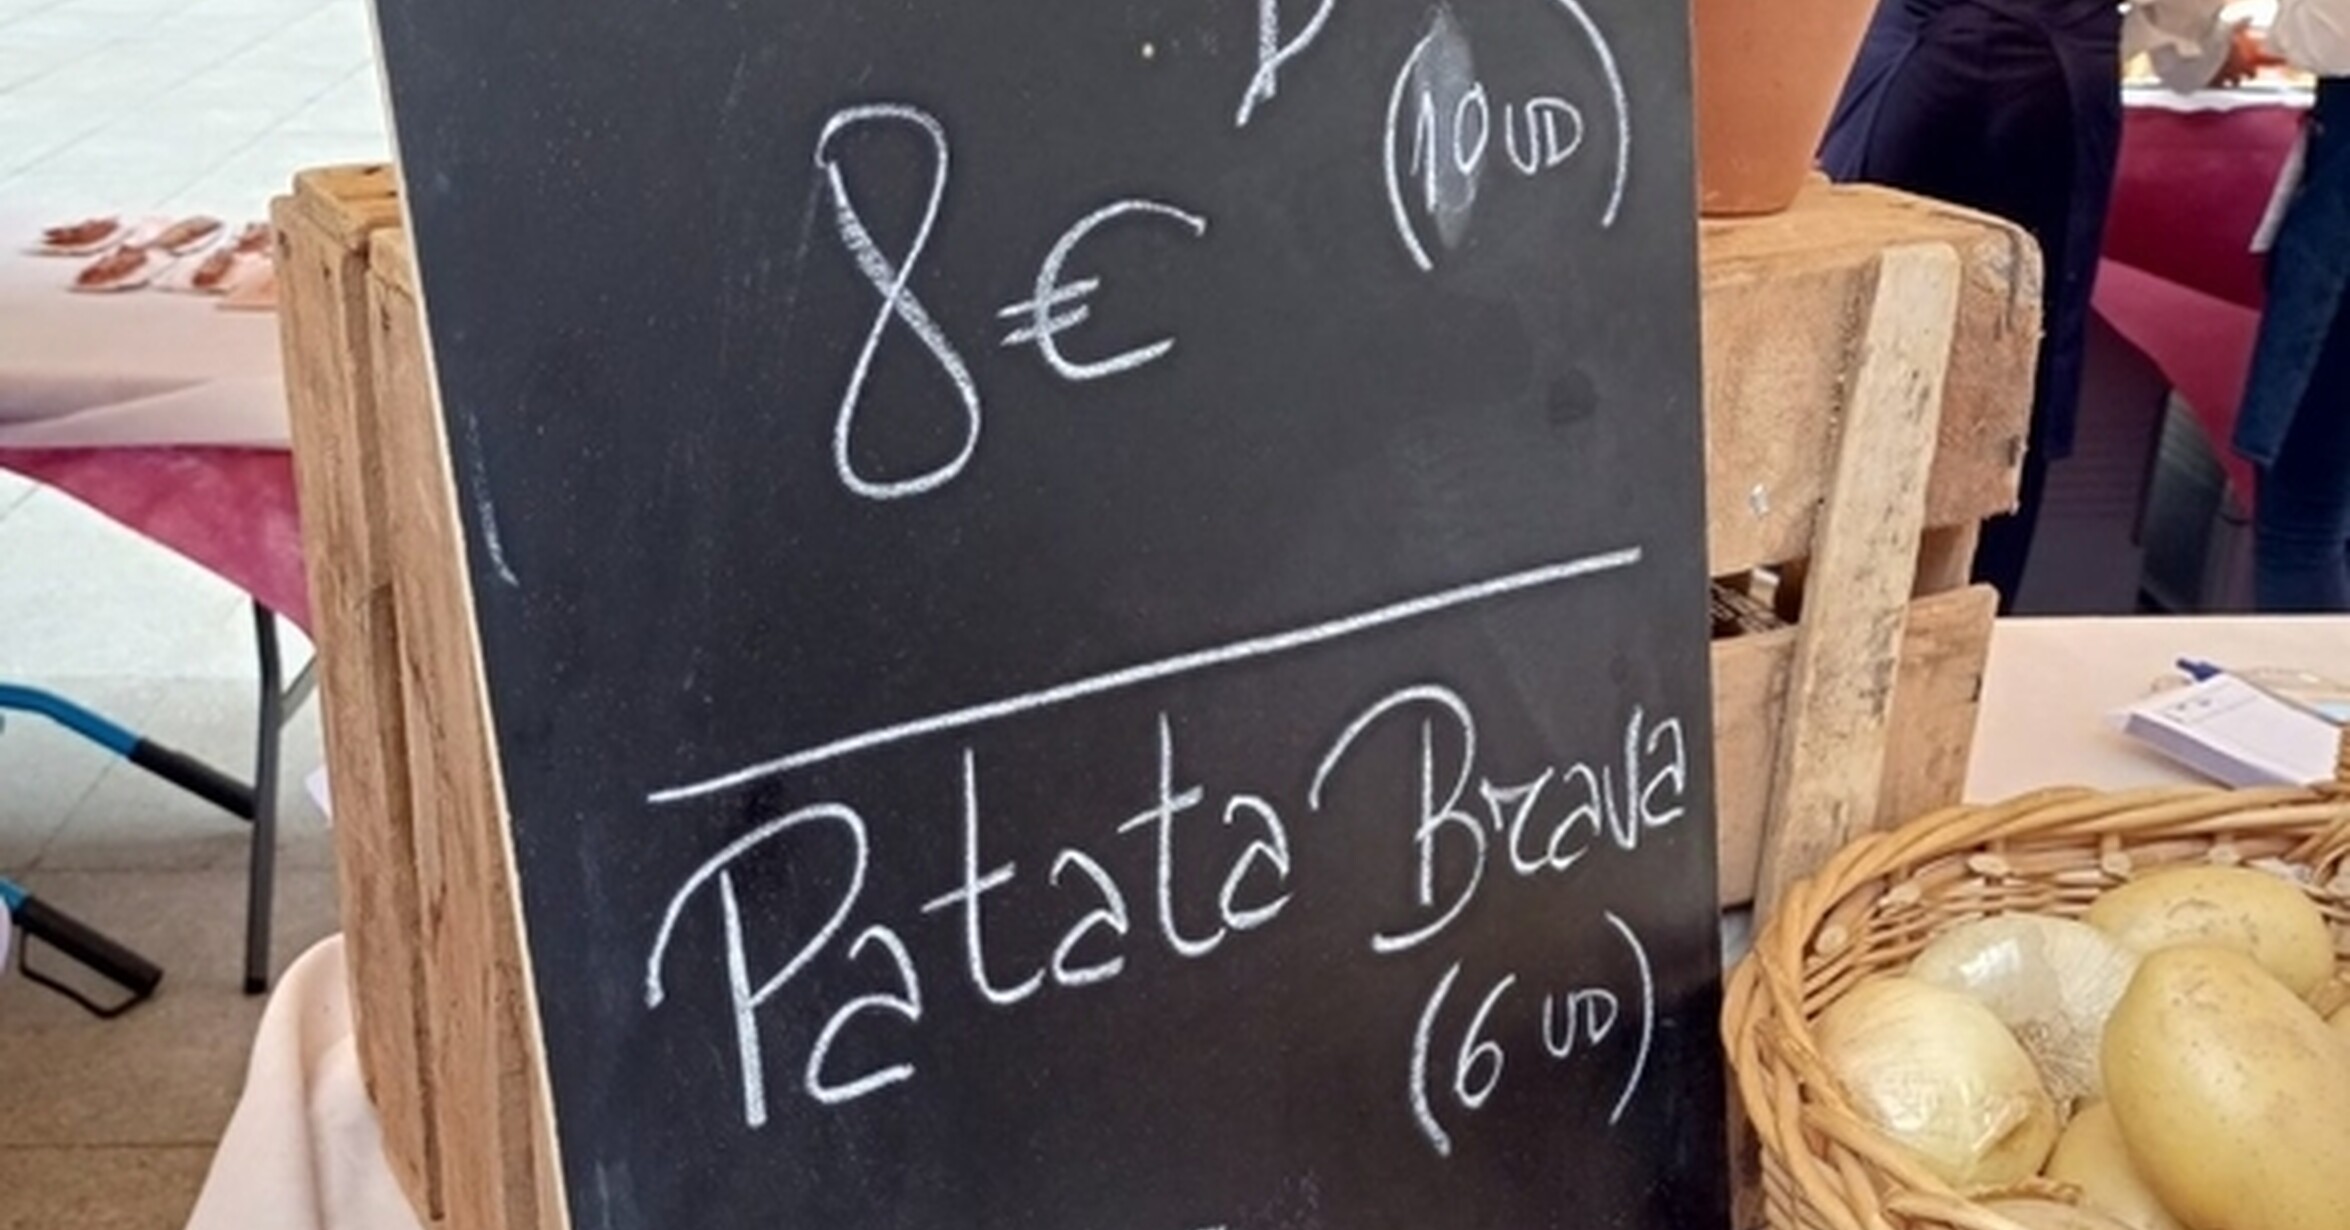 (10 UD)
8€
Patata Brava
(6 UD)